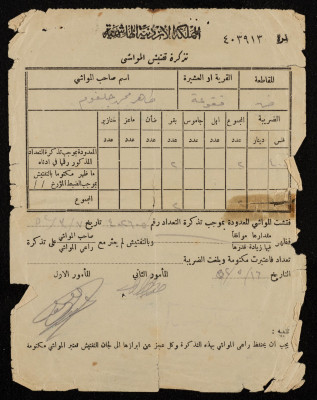 المملكة الاردنية الهاشمية
٤٠٣٩١٣
تذكرة تفتيش المواشي
المقاطعة
القرية او العشيرة
اسم صاحب المواشي
فقوعة
الضريبة
المجموع
ابل
جاموس
بقر
ضأن
ماعز
خنازير
فلس
دينار
عدد
عدد
عدد
عدد
عدد
عدد
عدد
المعدودة بموجب تذكرة التعداد
المذكور رقمها في ادناه
ما ظهر مكتومة بالتفتيش
بموجب الضبط المؤرخ / /
المجموع
٢
٢
فتشت المواشي المعدودة بموجب تذكرة التعداد رقم
تاريخ
فظهر
مقدارها موافقاً
فيها زيادة قدرها
وبالتفتيش لم يعثر مع
صاحب المواشي
راعي المواشي
على تذكرة
تعداد فاعتبرت مكتومة وبلغت الضريبة
التاريخ
المأمور الثاني
المأمور الاول
تنبيه :
يجب ان يحتفظ راعي المواشي بهذه التذكرة وكل عجز عن ابرازها الى لجان التفتيش تعتبر المواشي مكتومة